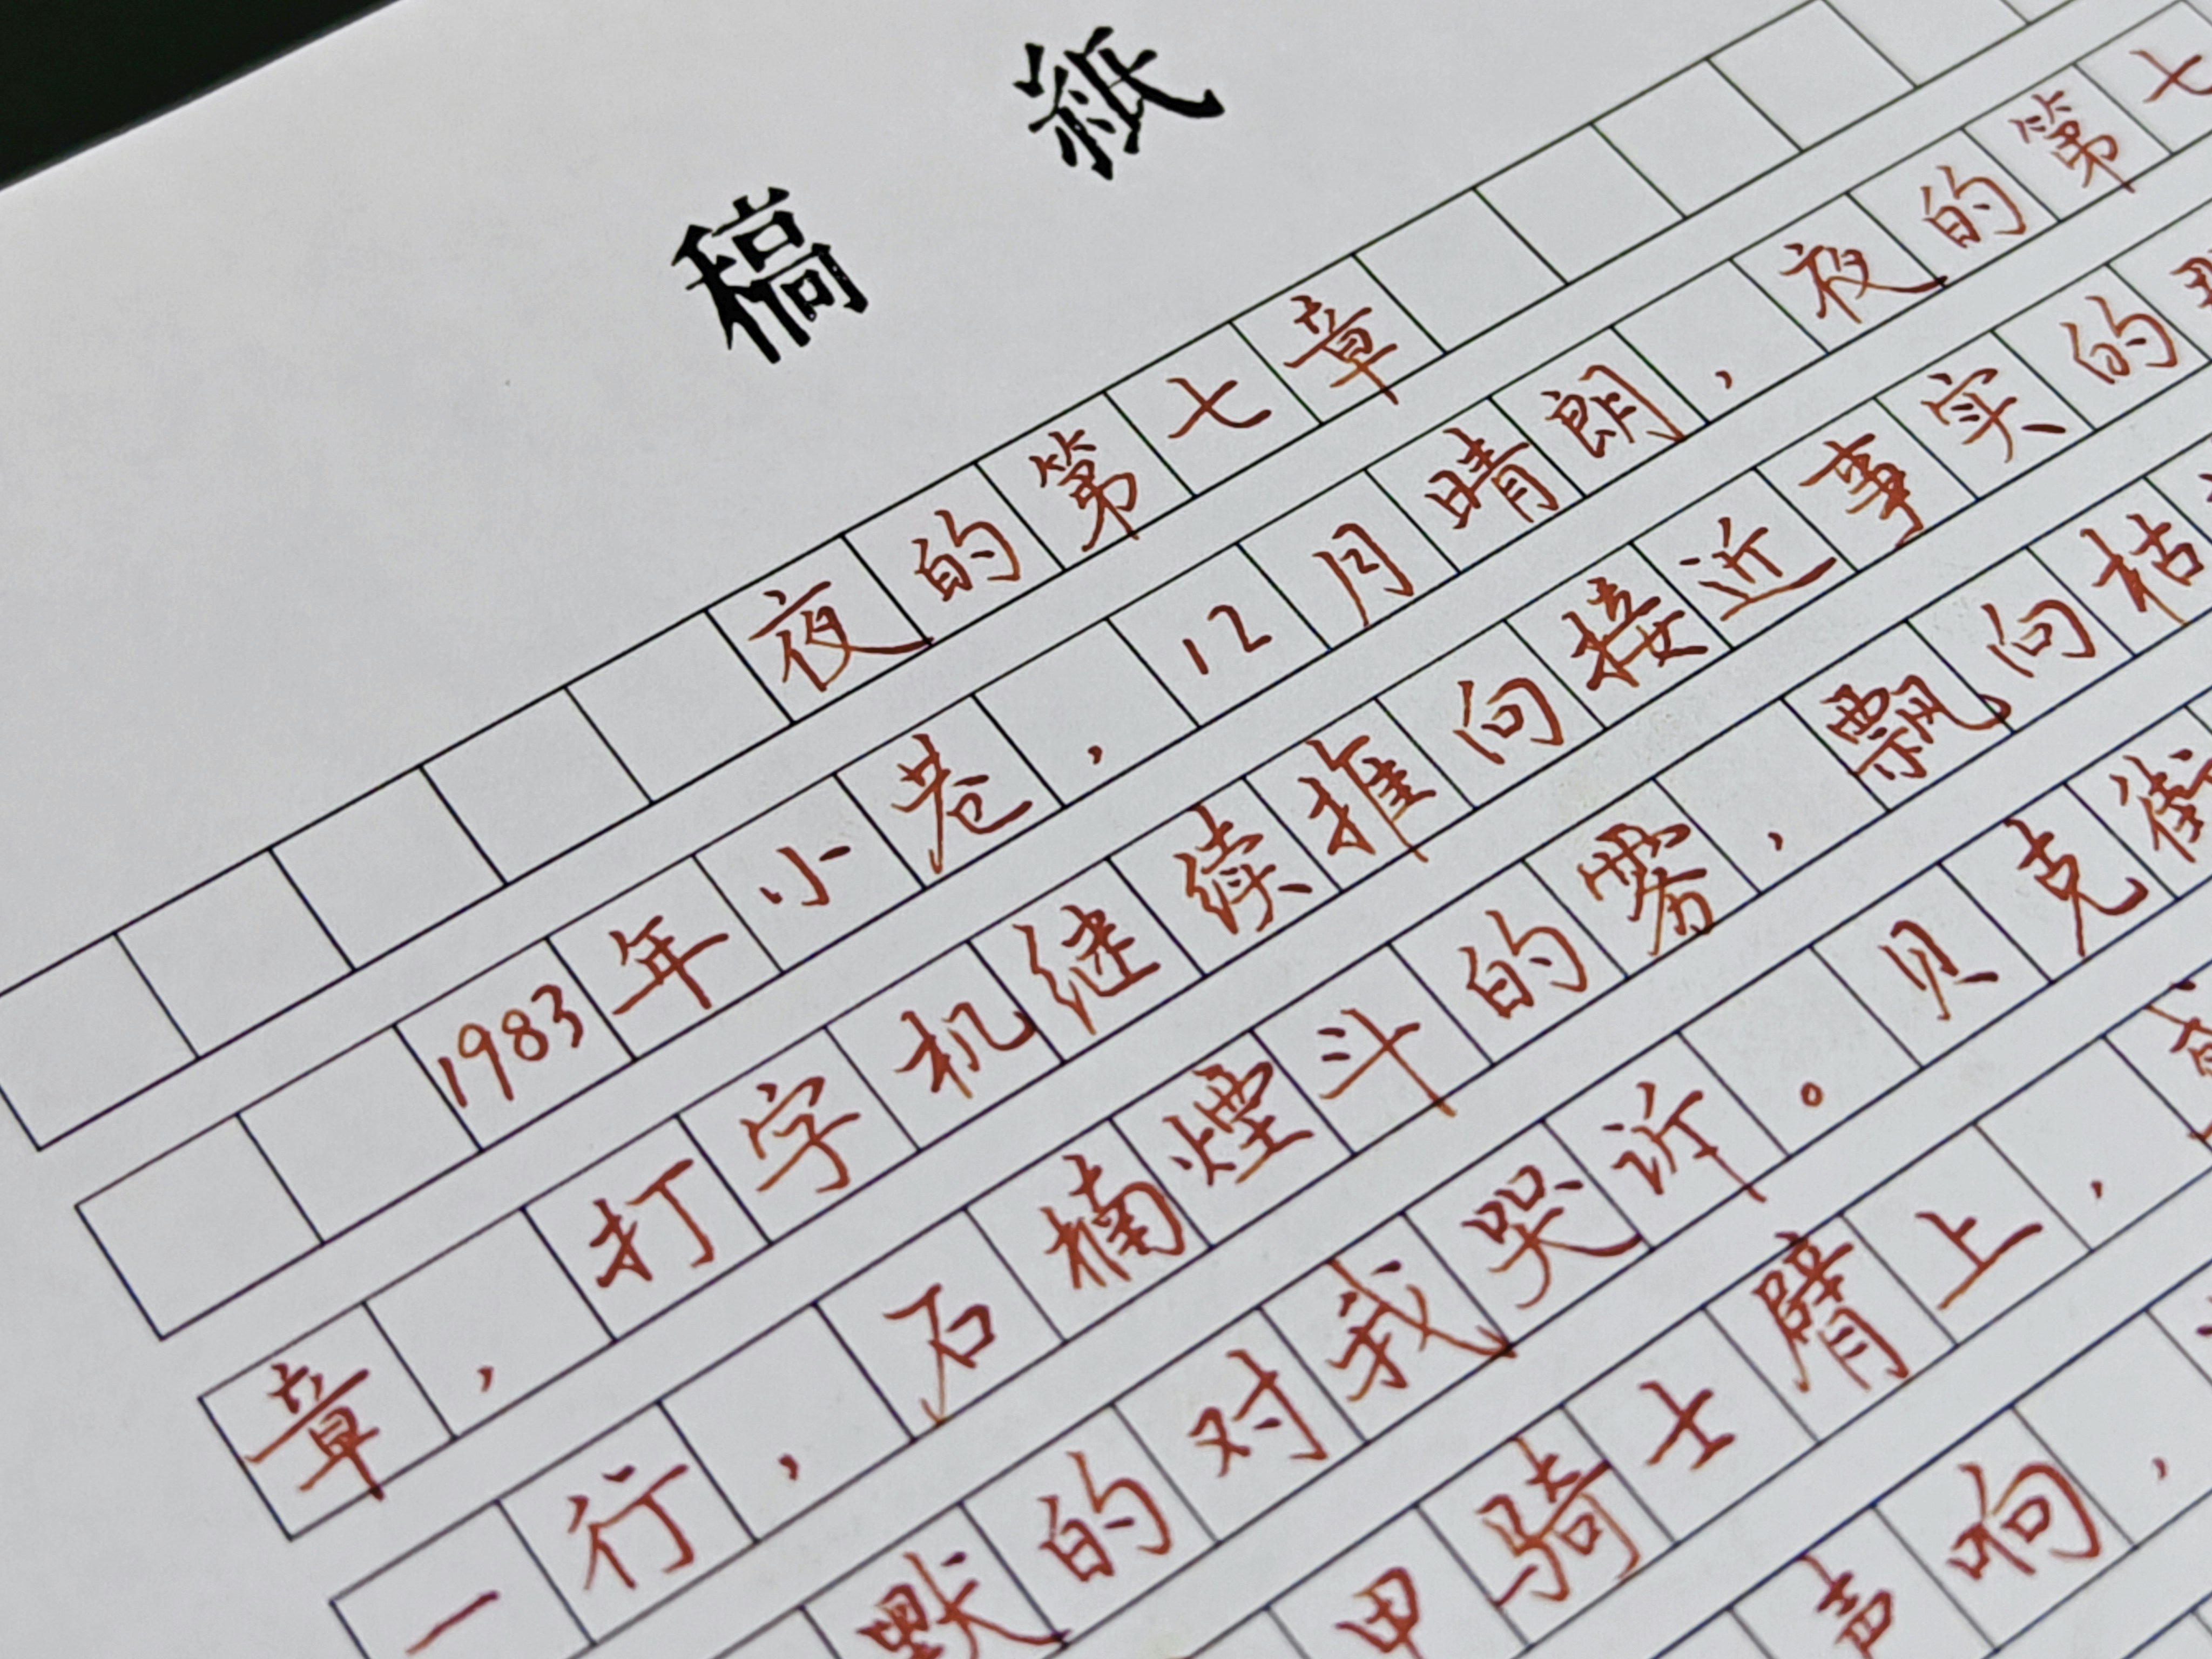 稿紙
夜的第七章
1983年小巷，12月晴朗，夜的第七
章，打字机继续推向接近事实的
一行，石楠煙斗的雾，飘向枯
默的对我哭诉。贝克街
甲骑士臂上，
声响，